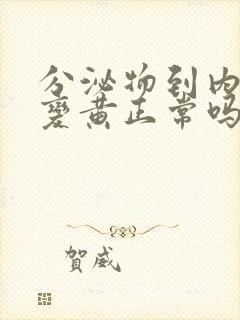 分泌物到内
变黄正常吗
賀威